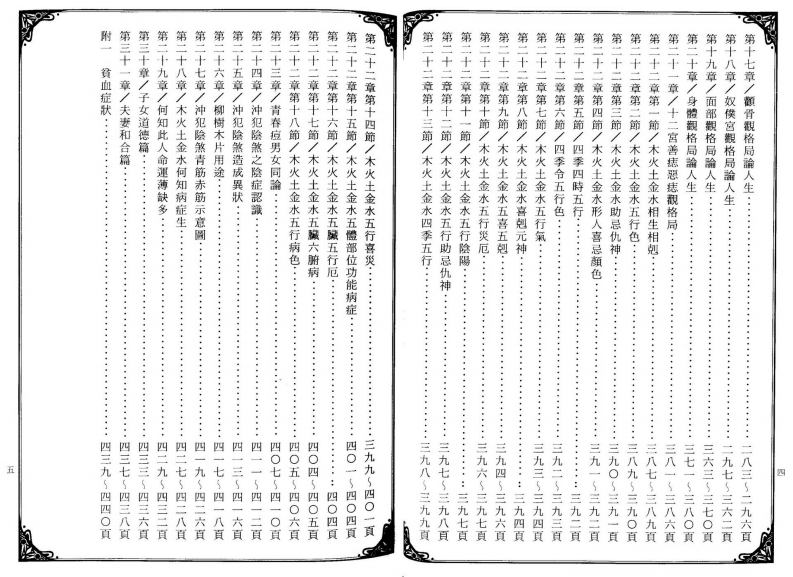 第十七章／顴骨觀格局論人生 一八三～二九六頁
第十八章／奴僕宮觀格局論人生 二九七～三六二頁
第十九章／面部觀格局論人生 三六三～三七〇頁
第二十章／身體觀格局論人生 三七一～三八〇頁
第二十一章／十二宮善痣惡痣觀格局 三八一～三八六頁
第二十二章第一節／木火土金水相生相剋 三八七～三八九頁
第二十二章第二節／木火土金水五行色 三八九～三九〇頁
第二十二章第三節／木火土金水助忌仇神 三九〇～三九一頁
第二十二章第四節／木火土金水形人喜忌顏色 三九一～三九二頁
第二十二章第五節／四季四時五行 三九二頁
第二十二章第六節／四季令五行色 三九二～三九三頁
第二十二章第七節／木火土金水五行氣 三九三～三九四頁
第二十二章第八節／木火土金水喜剋元神 三九四頁
第二十二章第九節／木火土金水五喜五剋 三九四～三九六頁
第二十二章第十節／木火土金水五行災厄 三九六～三九七頁
第二十二章第十一節／木火土金水五行陰陽 三九七頁
第二十二章第十二節／木火土金水五行助忌仇神 三九七～三九八頁
第二十二章第十三節／木火土金水四季五行 三九八～三九九頁
四
第二十二章第十四節／木火土金水五行喜災 三九九～四〇一頁
第二十二章第十五節／木火土金水五體部位功能病症 四〇一～四〇四頁
第二十二章第十六節／木火土金水五臟五行厄 四〇四頁
第二十二章第十七節／木火土金水五臟六腑病 四〇四～四〇五頁
第二十二章第十八節／木火土金水五行病色 四〇五～四〇六頁
第二十三章／青春痘男女同論 四〇七～四一〇頁
第二十四章／沖犯陰煞之陰症認識 四一一～四一二頁
第二十五章／沖犯陰煞造成異狀 四一三～四一六頁
第二十六章／柳樹木片用途 四一七～四一八頁
第二十七章／沖犯陰煞青筋赤筋示意圖 四一九～四二六頁
第二十八章／木火土金水何知病症生 四二七～四二八頁
第二十九章／何知此人命運薄缺多 四二九～四三二頁
第三十章／子女道德篇 四三三～四三六頁
第三十一章／夫妻和合篇 四三七～四三八頁
附一 貧血症狀 四三九～四四〇頁
五